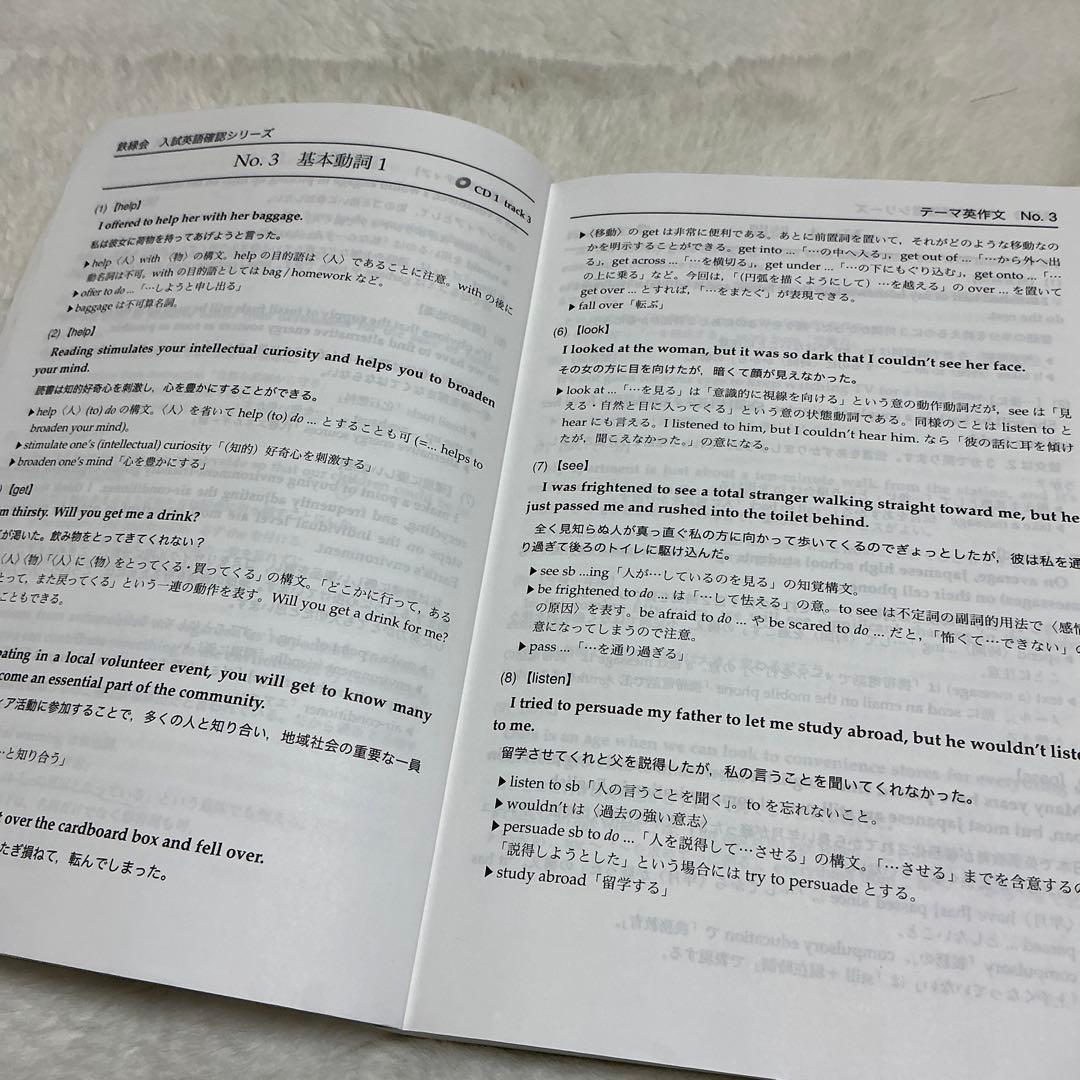 鉄緑会 入試英語確認シリーズ
No. 3 基本動詞 1
CD 1 track 3
(1)【help】
I offered to help her with her baggage.
私は彼女に荷物を持ってあげようと言った。
▶help〈人〉with〈物〉の構文。help の目的語は〈人〉であることに注意。with の後に
動名詞は不可。with の目的語としては bag / homework など。
▶offer to do ...「…しようと申し出る」
▶baggage は不可算名詞。
(2)【help】
Reading stimulates your intellectual curiosity and helps you to broaden
your mind.
読書は知的好奇心を刺激し，心を豊かにすることができる。
▶help〈人〉(to) do の構文。〈人〉を省いて help (to) do ... とすることも可 (=... helps to
broaden your mind)。
▶stimulate one's (intellectual) curiosity「（知的）好奇心を刺激する」
▶broaden one's mind「心を豊かにする」
)【get】
m thirsty. Will you get me a drink?
が渇いた。飲み物をとってきてくれない？
〈人〉〈物〉「〈人〉に〈物〉をとってくる・買ってくる」の構文。「どこかに行って，ある
とって，また戻ってくる」という一連の動作を表す。Will you get a drink for me?
こともできる。
pating in a local volunteer event, you will get to know many
come an essential part of the community.
ィア活動に参加することで，多くの人と知り合い，地域社会の重要な一員
…と知り合う」
t over the cardboard box and fell over.
たぎ損ねて，転んでしまった。
テーマ英作文 No. 3
▶〈移動〉の get は非常に便利である。あとに前置詞を置いて，それがどのような移動なの
かを明示することができる。get into ...「…の中へ入る」，get out of ...「…から外へ出
る」，get across ...「…を横切る」，get under ...「…の下にもぐり込む」，get onto ...「…
の上に乗る」など。今回は，「（円弧を描くようにして）…を越える」の over ... を置いて
get over ... とすれば，「…をまたぐ」が表現できる。
▶fall over「転ぶ」
(6)【look】
I looked at the woman, but it was so dark that I couldn't see her face.
その女の方に目を向けたが，暗くて顔が見えなかった。
▶look at ...「…を見る」は「意識的に視線を向ける」という意の動作動詞だが，see は「見
える・自然と目に入ってくる」という意の状態動詞である。同様のことは listen to と
hear にも言える。I listened to him, but I couldn't hear him. なら「彼の話に耳を傾け
たが，聞こえなかった。」の意になる。
(7)【see】
I was frightened to see a total stranger walking straight toward me, but he
just passed me and rushed into the toilet behind.
全く見知らぬ人が真っ直ぐ私の方に向かって歩いてくるのでぎょっとしたが，彼は私を通
り過ぎて後ろのトイレに駆け込んだ。
▶see sb ...ing「人が…しているのを見る」の知覚構文。
▶be frightened to do ... は「…して怯える」の意。to see は不定詞の副詞的用法で〈感情
の原因〉を表す。be afraid to do ... や be scared to do ... だと，「怖くて…できない」の
意になってしまうので注意。
▶pass ...「…を通り過ぎる」
(8)【listen】
I tried to persuade my father to let me study abroad, but he wouldn't listen
to me.
留学させてくれと父を説得したが，私の言うことを聞いてくれなかった。
▶listen to sb「人の言うことを聞く」。to を忘れないこと。
▶wouldn't は〈過去の強い意志〉
▶persuade sb to do ...「人を説得して…させる」の構文。「…させる」までを含意するの
「説得しようとした」という場合には try to persuade とする。
▶study abroad「留学する」